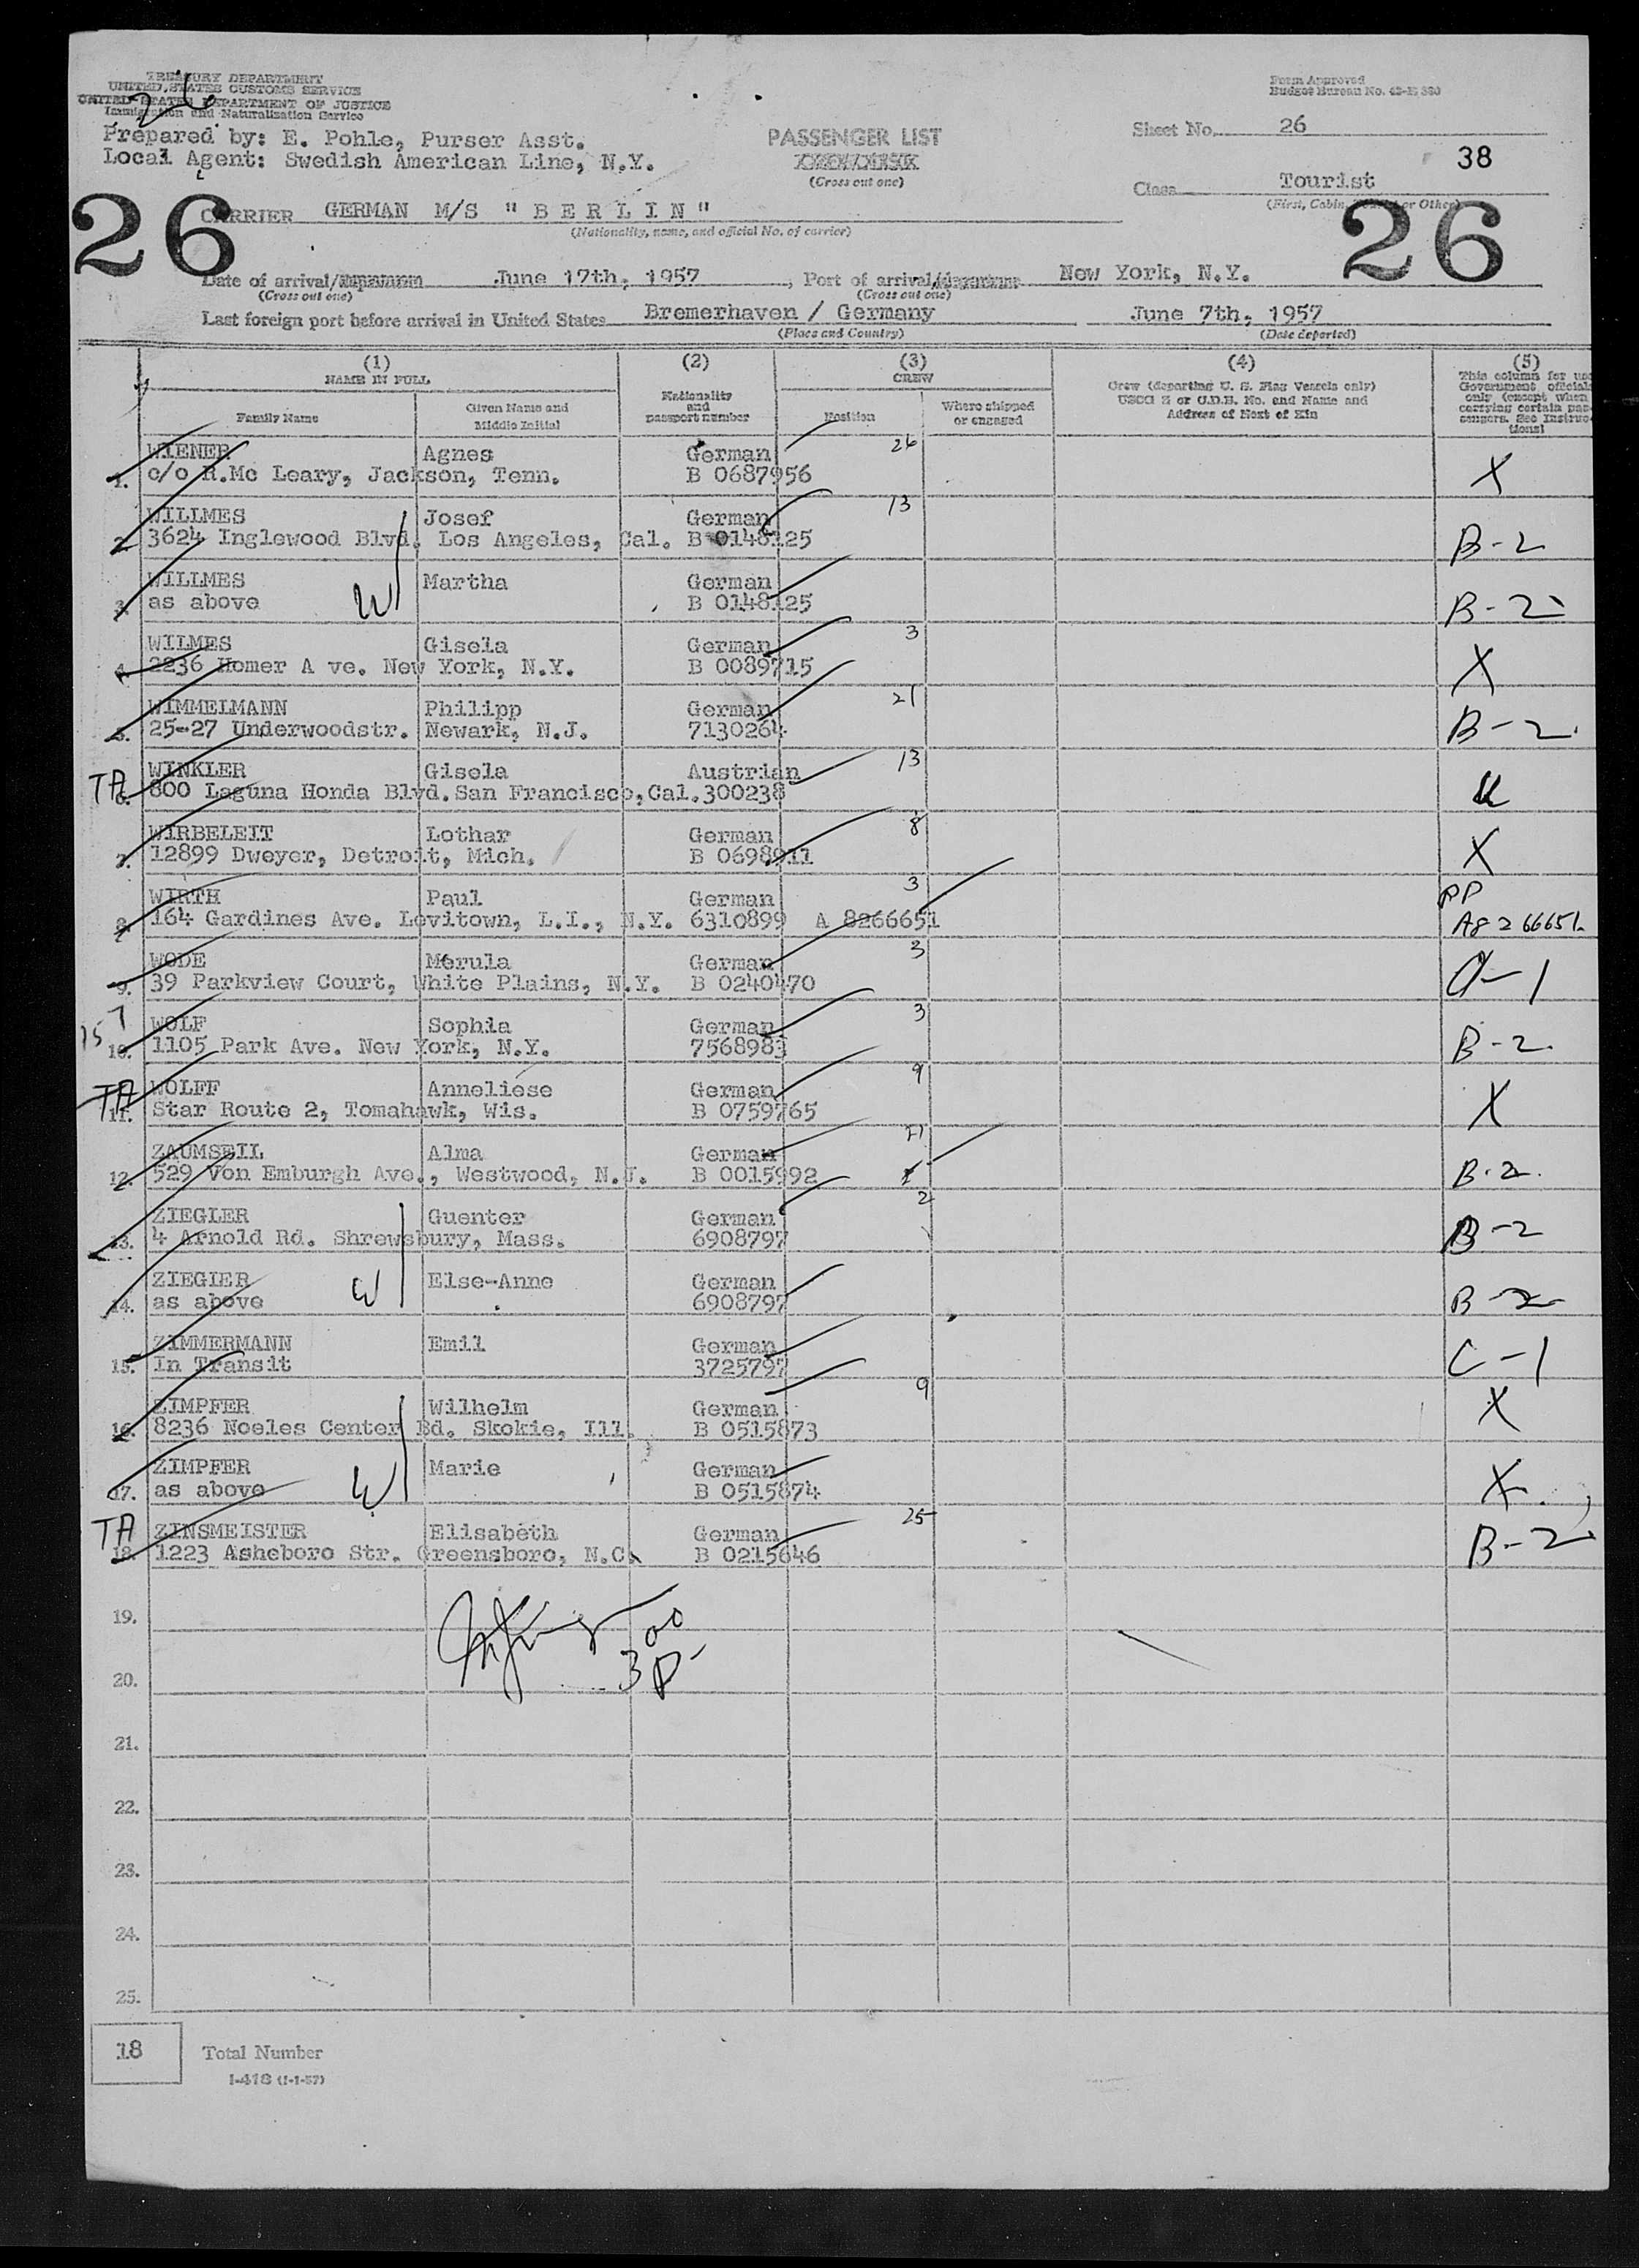 TREASURY DEPARTMENT
UNITED STATES CUSTOMS SERVICE
UNITED STATES DEPARTMENT OF JUSTICE
Immigration and Naturalization Service
26
Form Approved
Budget Bureau No. 43-R 390
Prepared by: E. Pohle, Purser Asst.
Local Agent: Swedish American Line, N.Y.
PASSENGER LIST
(Cross out one)
Sheet No. 26
38
Class Tourist
(First, Cabin, Tourist or Other)
26
26
CARRIER GERMAN M/S " B E R L I N "
(Nationality, name, and official No. of carrier)
Date of arrival/departure June 17th, 1957, Port of arrival/departure New York, N.Y.
(Cross out one) (Cross out one)
Last foreign port before arrival in United States Bremerhaven / Germany June 7th, 1957
(Place and Country) (Date departed)
(1) NAME IN FULL
Family Name
Given Name and Middle Initial
(2)
Nationality and passport number
(3) CREW
Position
Where shipped or engaged
(4)
Crew (departing U. S. Flag Vessels only)
USCG Z or C.D.B. No. and Name and
Address of Next of Kin
(5)
This column for use
Government officials
only (except when
carrying certain pas-
sengers. See Instruc-
tions)
WIENER Agnes German 26
1. c/o R.Mc Leary, Jackson, Tenn. B 0687956 X
WILLMES Josef German 13
2. 3624 Inglewood Blvd. Los Angeles, Cal. B 0148125 B-2
WILLMES Martha German
3. as above W B 0148125 B-2
WILMES Gisela German 3
4. 2236 Homer A ve. New York, N.Y. B 0089715 X
WIMMELMANN Philipp German 21
5. 25-27 Underwoodstr. Newark, N.J. 7130264 B-2
TA WINKLER Gisela Austrian 13
6. 800 Laguna Honda Blvd. San Francisco, Cal. 300238
WIRBELEIT Lothar German 8
7. 12899 Dweyer, Detroit, Mich. B 0698911 X
WIRTH Paul German 3 RP
8. 164 Gardines Ave. Levitown, L.I., N.Y. 6310899 A 8266651 A8266651
WODE Merula German 3
9. 39 Parkview Court, White Plains, N.Y. B 0240470
WOLF Sophia German 3
10. 1105 Park Ave. New York, N.Y. 7568983 B-2
TA WOLFF Anneliese German 9
11. Star Route 2, Tomahawk, Wis. B 0759765 X
ZAUMSEIL Alma German 21
12. 529 Von Emburgh Ave., Westwood, N.J. B 0015992 B-2
ZIEGLER Guenter German 2
13. 4 Arnold Rd. Shrewsbury, Mass. 6908797 B-2
ZIEGLER Else-Anne German
14. as above W 6908797 B-2
ZIMMERMANN Emil German
15. In Transit 3725797 C-1
ZIMPFER Wilhelm German 9
16. 8236 Noeles Center Rd. Skokie, Ill. B 0515873 X
ZIMPFER Marie German
17. as above W B 0515874 X
TA ZINSMEISTER Elisabeth German 25
18. 1223 Asheboro Str. Greensboro, N.C. B 0215646 B-2
19.
20.
21.
22.
23.
24.
25.
18 Total Number
I-418 (1-1-57)